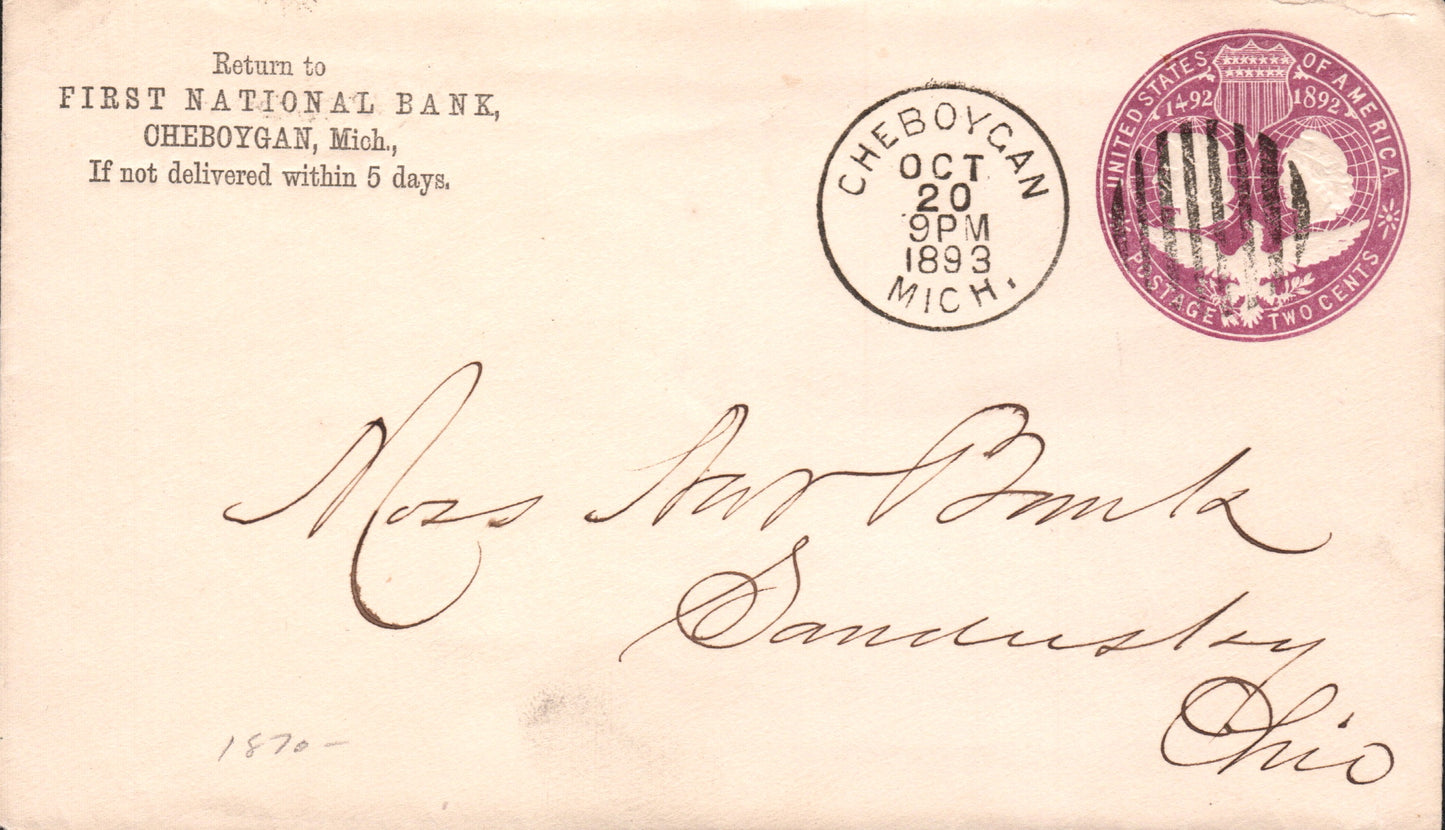 Return to
FIRST NATIONAL BANK,
CHEBOYGAN, Mich.,
If not delivered within 5 days.
CHEBOYGAN
OCT
20
9PM
1893
MICH.
UNITED STATES OF AMERICA
1492 1892
POSTAGE TWO CENTS
Moss Nat Bank
Sandusky
Ohio
1870-